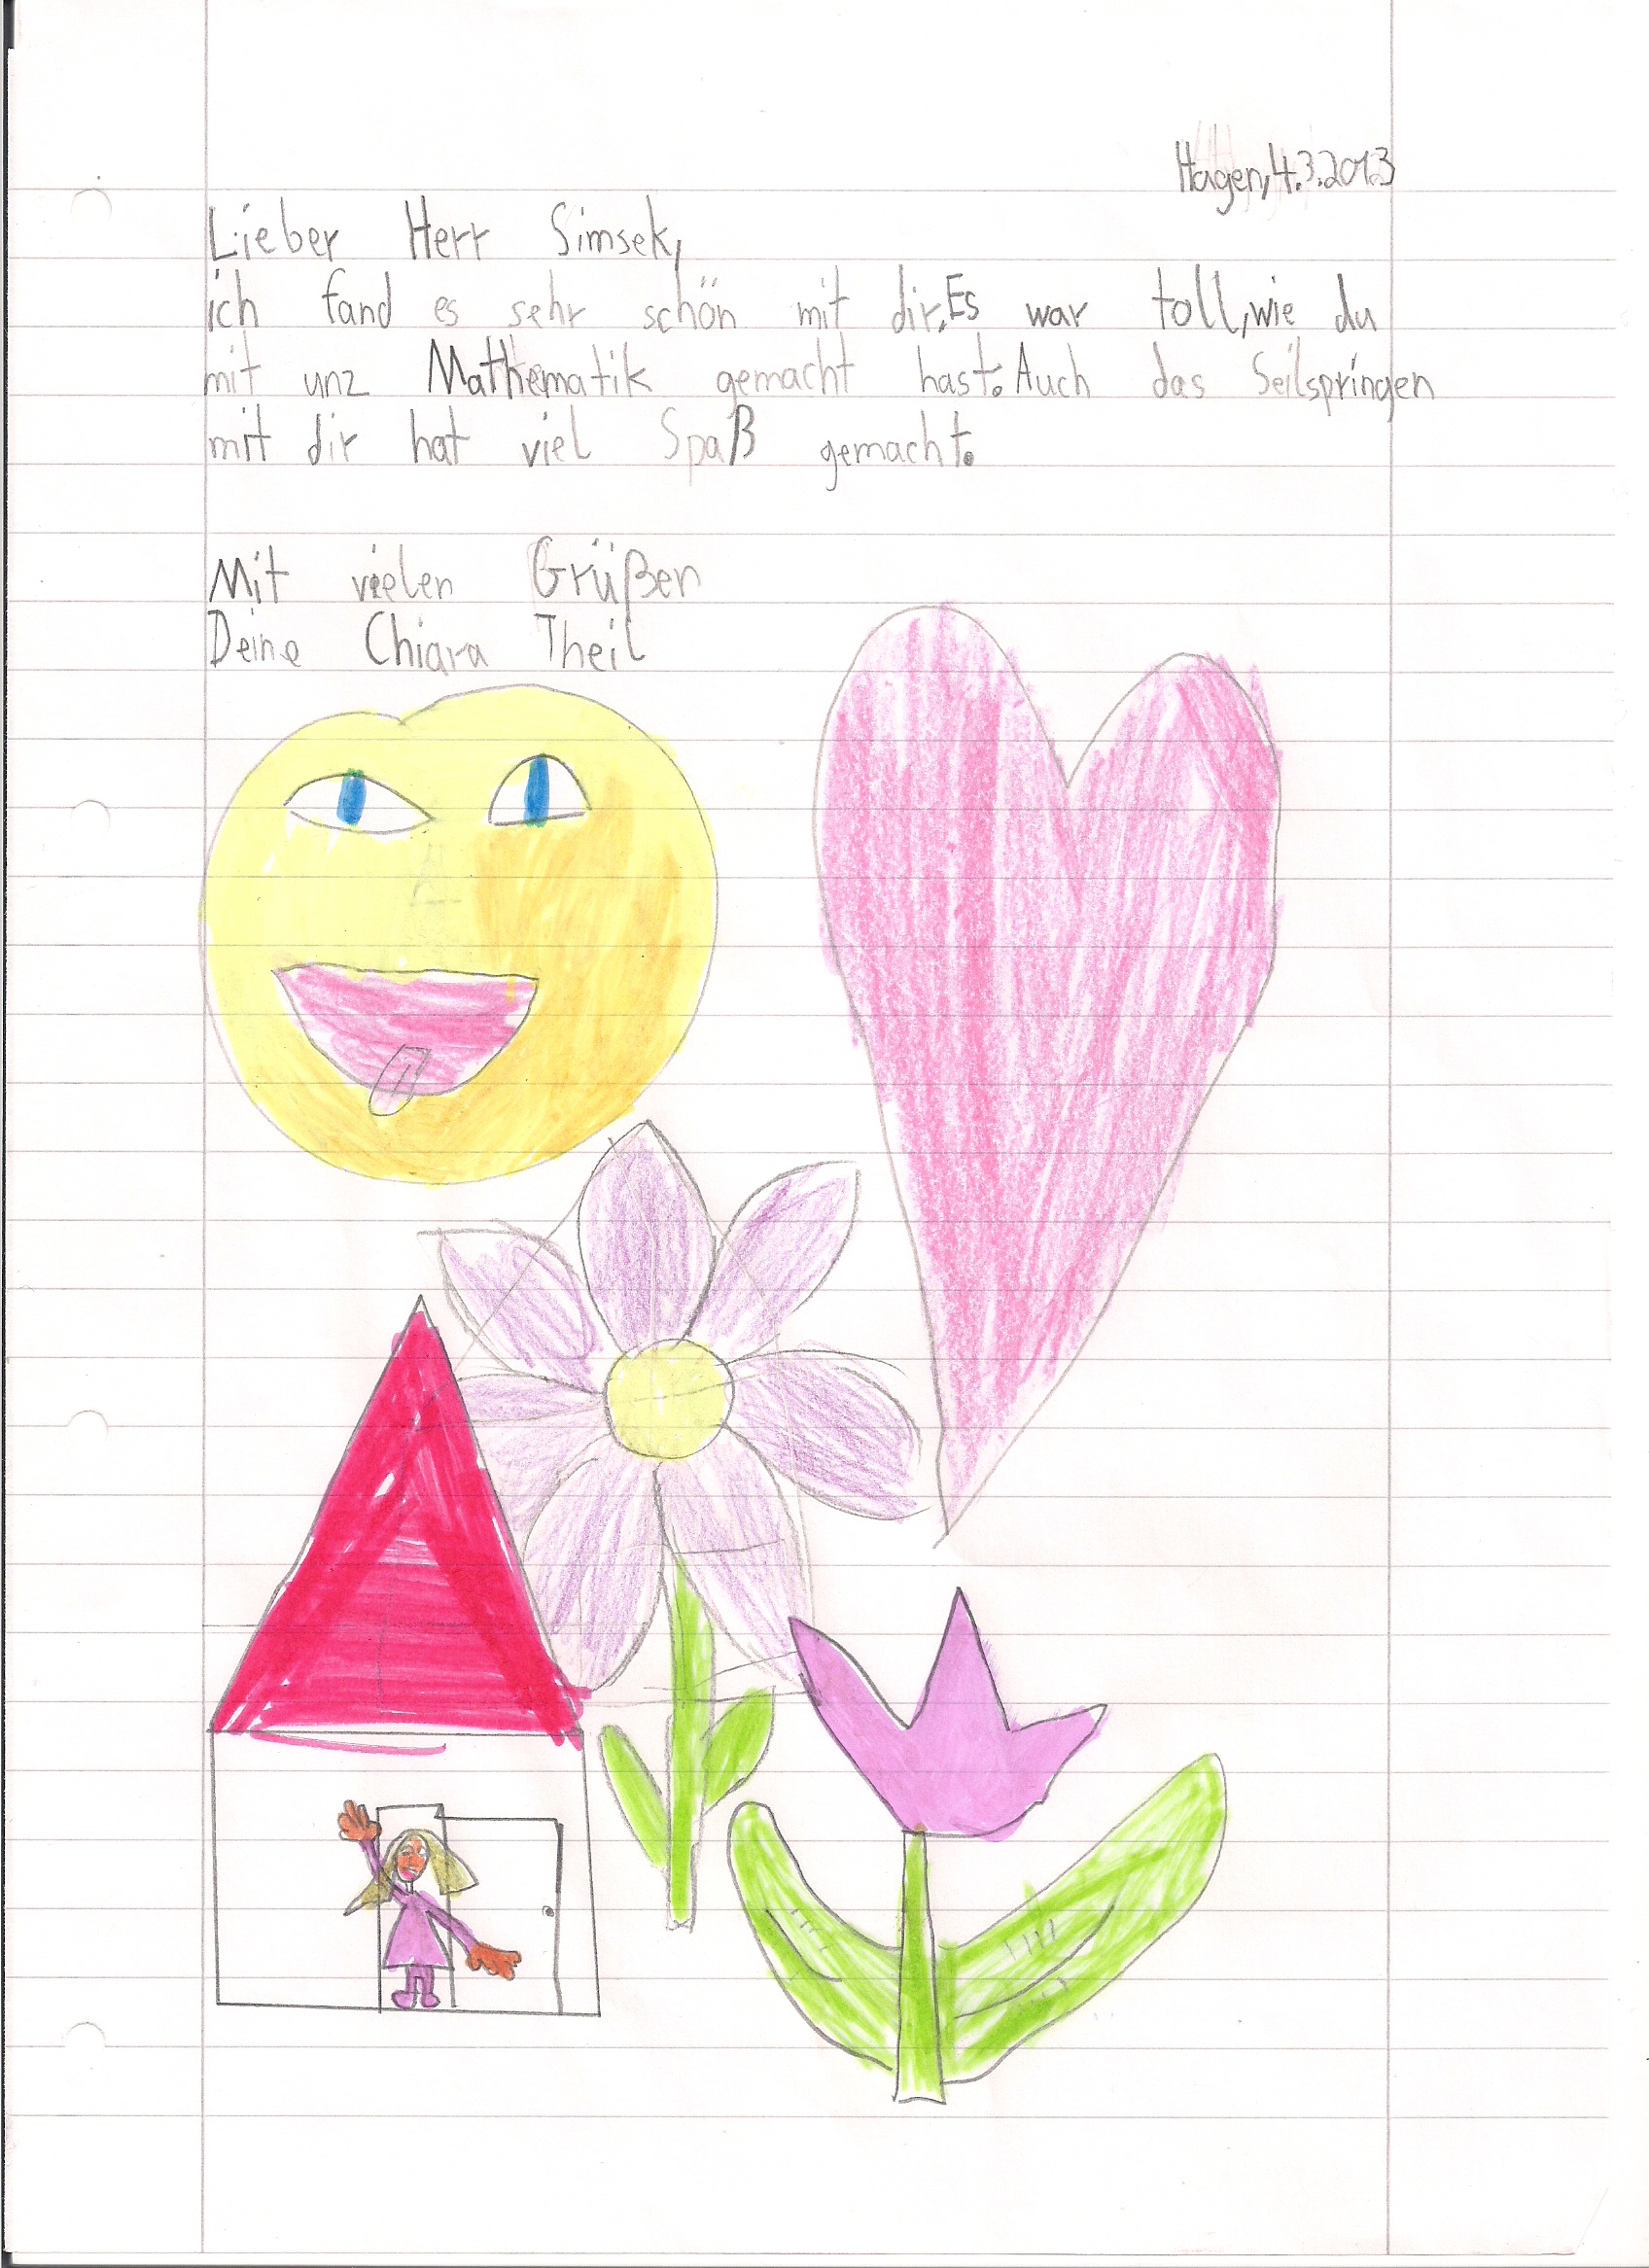 Hagen,4.3.2013
Lieber Herr Simsek,
ich fand es sehr schön mit dir.Es war toll,wie du
mit unz Mathematik gemacht hast.Auch das Seilspringen
mit dir hat viel Spaß gemacht.
Mit vielen Grüßen
Deine Chiara Theil